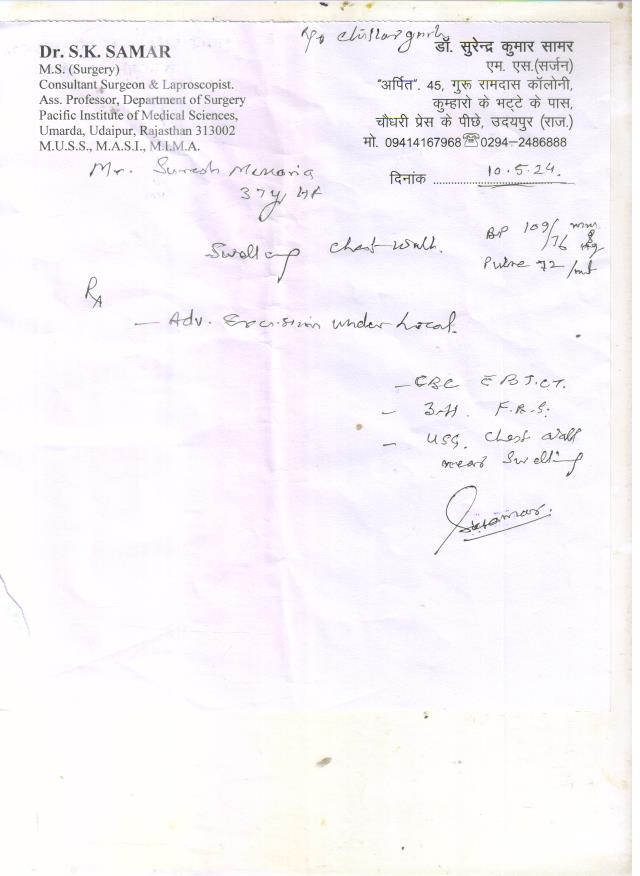 R/o Chittorgarh
Dr. S.K. SAMAR
M.S. (Surgery)
Consultant Surgeon & Laproscopist.
Ass. Professor, Department of Surgery
Pacific Institute of Medical Sciences,
Umarda, Udaipur, Rajasthan 313002
M.U.S.S., M.A.S.I., M.I.M.A.
डॉ. सुरेन्द्र कुमार सामर
एम. एस.(सर्जन)
"अर्पित". 45, गुरू रामदास कॉलोनी,
कुम्हारो के भट्टे के पास,
चौधरी प्रेस के पीछे, उदयपुर (राज.)
मो. 09414167968 ☎0294-2486888
दिनांक 10.5.24.
Mr. Suresh Menaria
37y
BP 109/76 mm Hg
Pulse 72/mt
Swelling Chest wall.
Rx
- Adv. Excision under Local.
- CBC BT.CT.
- F.B.S.
- USG. Chest wall
near Swelling
SKSamar.